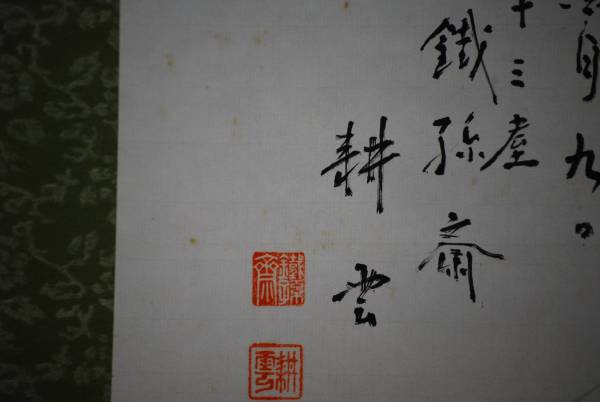 月九日
十三
鐵孫齋
耕雲
鐵孫齋
耕雲